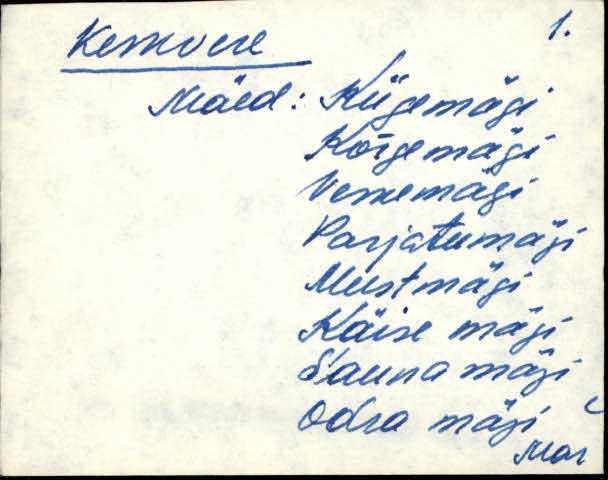 Keskvere 1.
Mäed: Kiigemägi
Kõrgemägi
Veskemägi
Parjatumägi
Mustmägi
Käise mägi
Sauna mägi
Odra mägi
Mar